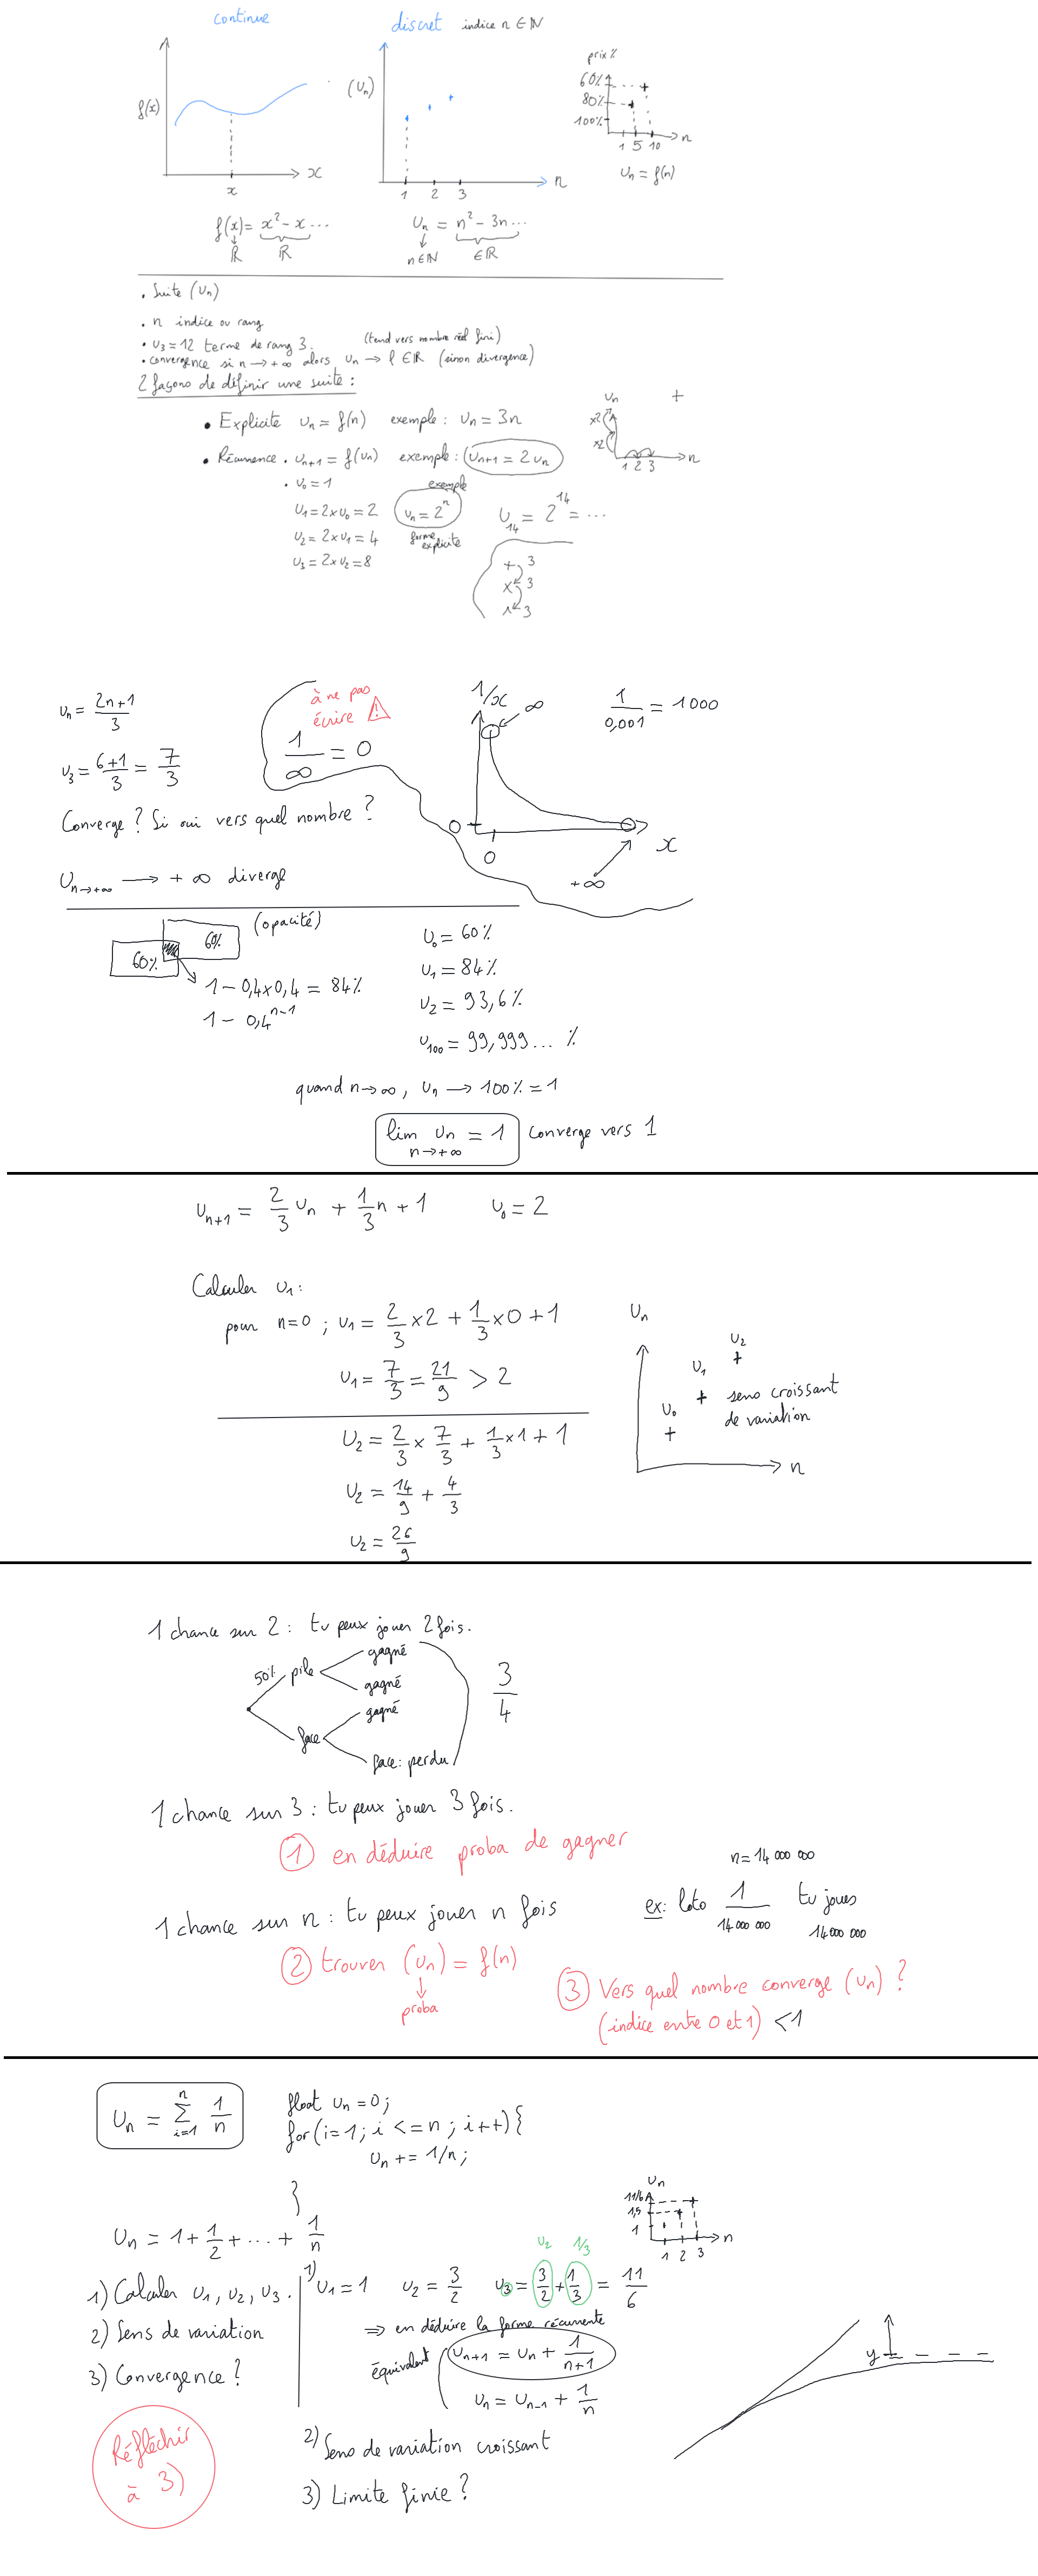 continue
f(x)
x
x
f(x) = x² - x ...
ℝ ℝ
discret indice n ∈ ℕ
(Un)
1 2 3 n
Un = n² - 3n ...
n ∈ ℕ ∈ ℝ
prix %
60%
80%
100%
1 5 10 n
Un = f(n)
• Suite (Un)
• n indice ou rang
• U3 = 12 terme de rang 3. (tend vers nombre réel fini)
• convergence si n → +∞ alors Un → ℓ ∈ ℝ (sinon divergence)
2 façons de définir une suite :
• Explicite Un = f(n) exemple : Un = 3n
• Récurrence • Un+1 = f(Un) exemple : Un+1 = 2Un
• U0 = 1
U1 = 2×U0 = 2
U2 = 2×U1 = 4
U3 = 2×U2 = 8
exemple
Un = 2^n
forme explicite
U14 = 2^14 = ...
+ 3
× 3
^ 3
Un +
×2
×2
1 2 3 n
Un = (2n+1)/3
U3 = (6+1)/3 = 7/3
Converge ? Si oui vers quel nombre ?
Un→+∞ → +∞ diverge
à ne pas
écrire !
1/∞ = 0
1/x ∞
0
0
x
+∞
1/0,001 = 1000
(opacité)
60%
60%
1 - 0,4×0,4 = 84%
1 - 0,4^n-1
U0 = 60%
U1 = 84%
U2 = 93,6%
U100 = 99,999... %
quand n→∞, Un → 100% = 1
lim Un = 1 Converge vers 1
n→+∞
Un+1 = 2/3 Un + 1/3 n + 1 U0 = 2
Calculer U1 :
pour n=0 ; U1 = 2/3 × 2 + 1/3 × 0 + 1
U1 = 7/3 = 21/9 > 2
U2 = 2/3 × 7/3 + 1/3 × 1 + 1
U2 = 14/9 + 4/3
U2 = 26/9
Un
U2
+
U1
+ sens croissant
de variation
U0
+
n
1 chance sur 2 : tu peux jouer 2 fois.
50% pile
gagné
gagné
face
gagné
face : perdu
3/4
1 chance sur 3 : tu peux jouer 3 fois.
① en déduire proba de gagner
1 chance sur n : tu peux jouer n fois
n = 14 000 000
ex : loto 1/14 000 000 tu joues
14 000 000
② trouver (Un) = f(n)
proba
③ Vers quel nombre converge (Un) ?
(indice entre 0 et 1) < 1
Un = Σ i=1 n 1/n
float Un = 0 ;
for (i=1 ; i <= n ; i++) {
Un += 1/n ;
}
Un = 1 + 1/2 + ... + 1/n
1) Calculer U1, U2, U3.
2) Sens de variation
3) Convergence ?
Réfléchir
à 3)
1) U1 = 1 U2 = 3/2 U3 = 3/2 + 1/3 = 11/6
U2 1/3
⇒ en déduire la forme récurrente
équivalent
Un+1 = Un + 1/(n+1)
Un = Un-1 + 1/n
2) Sens de variation croissant
3) Limite finie ?
Un
11/6
1,5
1
1 2 3 n
y